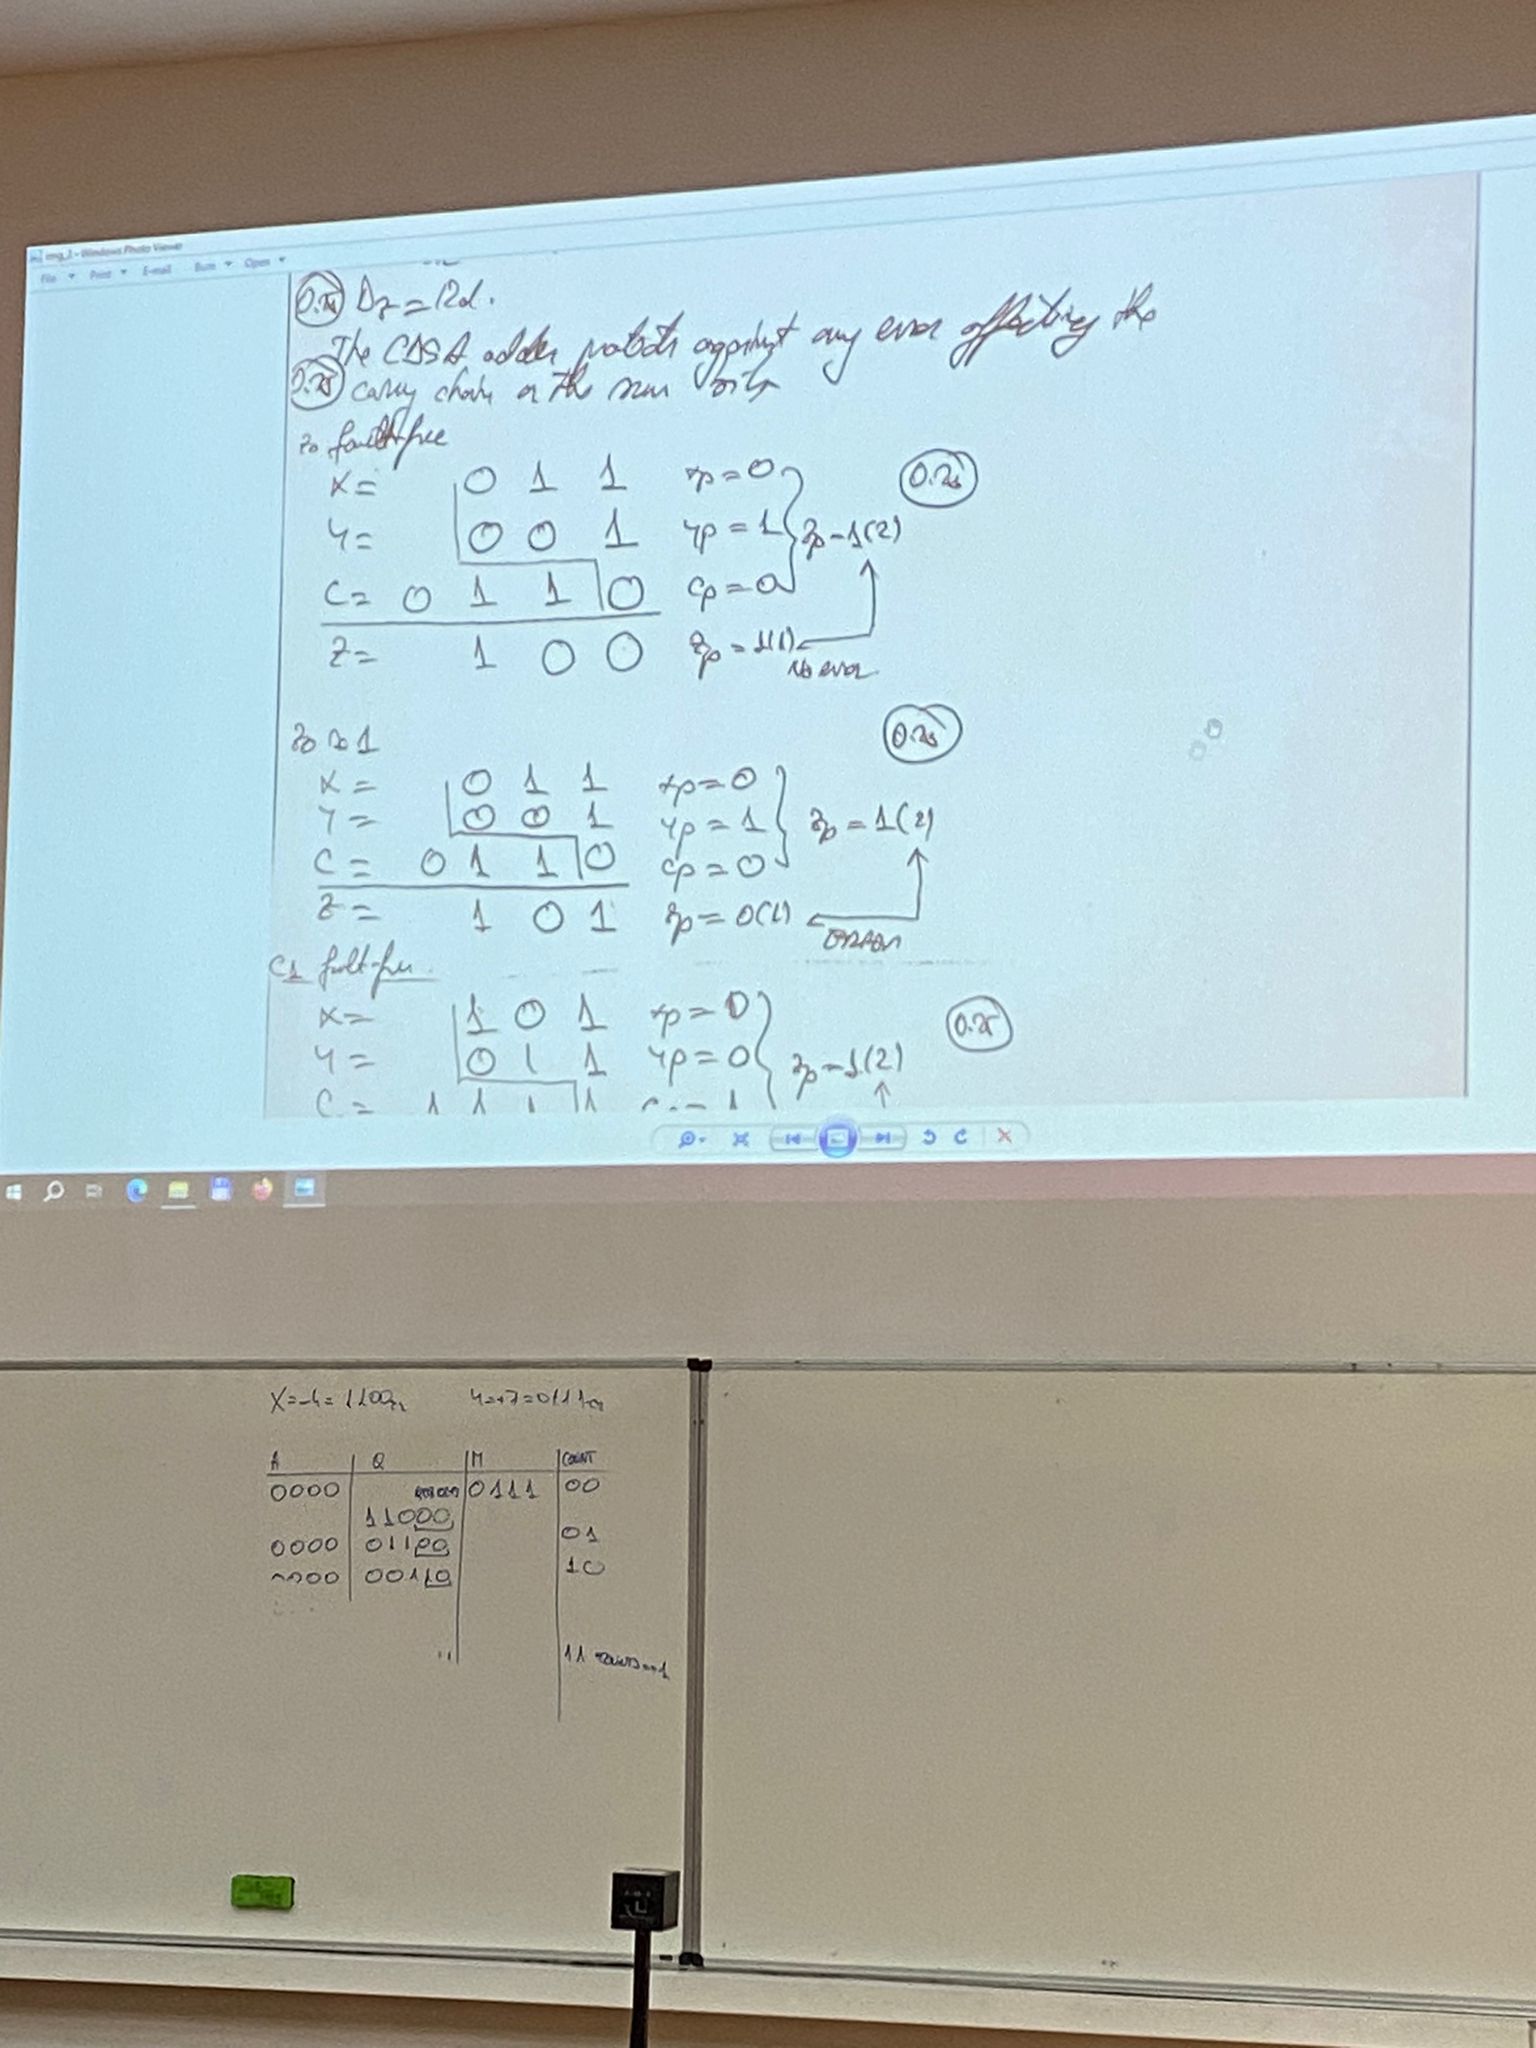 img_1 - Windows Photo Viewer
File Print E-mail Burn Open
= 12d.
The CDSA adder protects against any error affecting the
0.25 carry chain or the sum bits
z0 fault-free
X= 0 1 1 xp=0 0.25
Y= 0 0 1 yp=1 zp=1(2)
C= 0 1 1 0 cp=0
Z= 1 0 0 zp=1(1) No error
0.25
X= 0 1 1 xp=0
Y= 0 0 1 yp=1 zp=1(2)
C= 0 1 1 0 cp=0
Z= 1 0 1 zp=0(1) ERROR
C1 fault-free
X= 1 0 1 xp=0 0.25
Y= 0 1 1 yp=0 zp=1(2)
C= 1 1 1 1
X=-4=1100 Y=+7=0111
A Q M COUNT
0000 0111 00
11000
01
0000 01100
10
00 00110
11